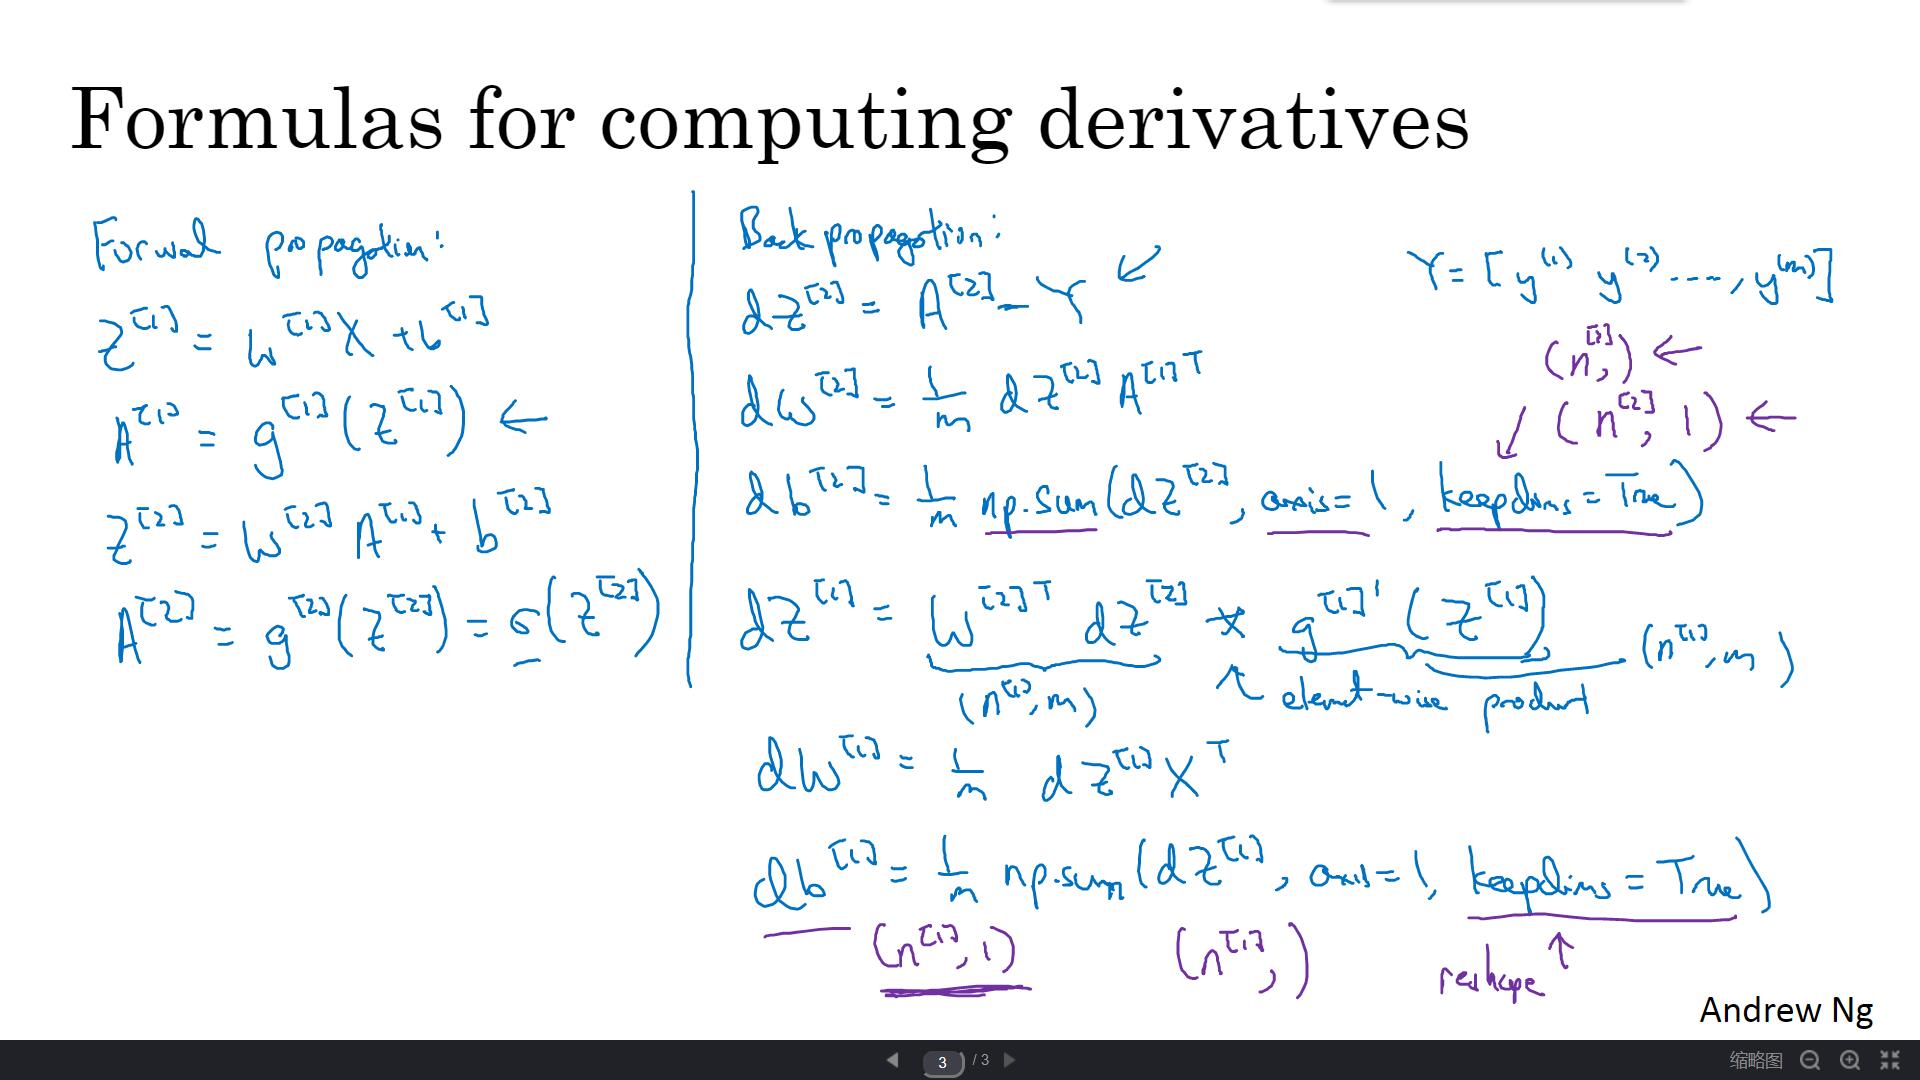 Formulas for computing derivatives
Forwal propagation:
Z^[1] = W^[1]X + b^[1]
A^[1] = g^[1](Z^[1]) ←
Z^[2] = W^[2] A^[1] + b^[2]
A^[2] = g^[2](Z^[2]) = σ(Z^[2])
Back propagation:
dZ^[2] = A^[2] - Y ↙
dW^[2] = 1/m dZ^[2] A^[1]T
db^[2] = 1/m np.sum(dZ^[2], axis=1, keepdims=True)
dZ^[1] = W^[2]T dZ^[2] * g^[1]'(Z^[1])
(n^[1], m) ↑ element-wise product (n^[1], m)
dW^[1] = 1/m dZ^[1] X^T
db^[1] = 1/m np.sum(dZ^[1], axis=1, keepdims=True)
(n^[1], 1) (n^[1],) reshape ↑
Y = [y^(1) y^(2) ...., y^(m)]
(n^[2],) ←
↙ (n^[2], 1) ←
Andrew Ng
3 / 3
缩略图